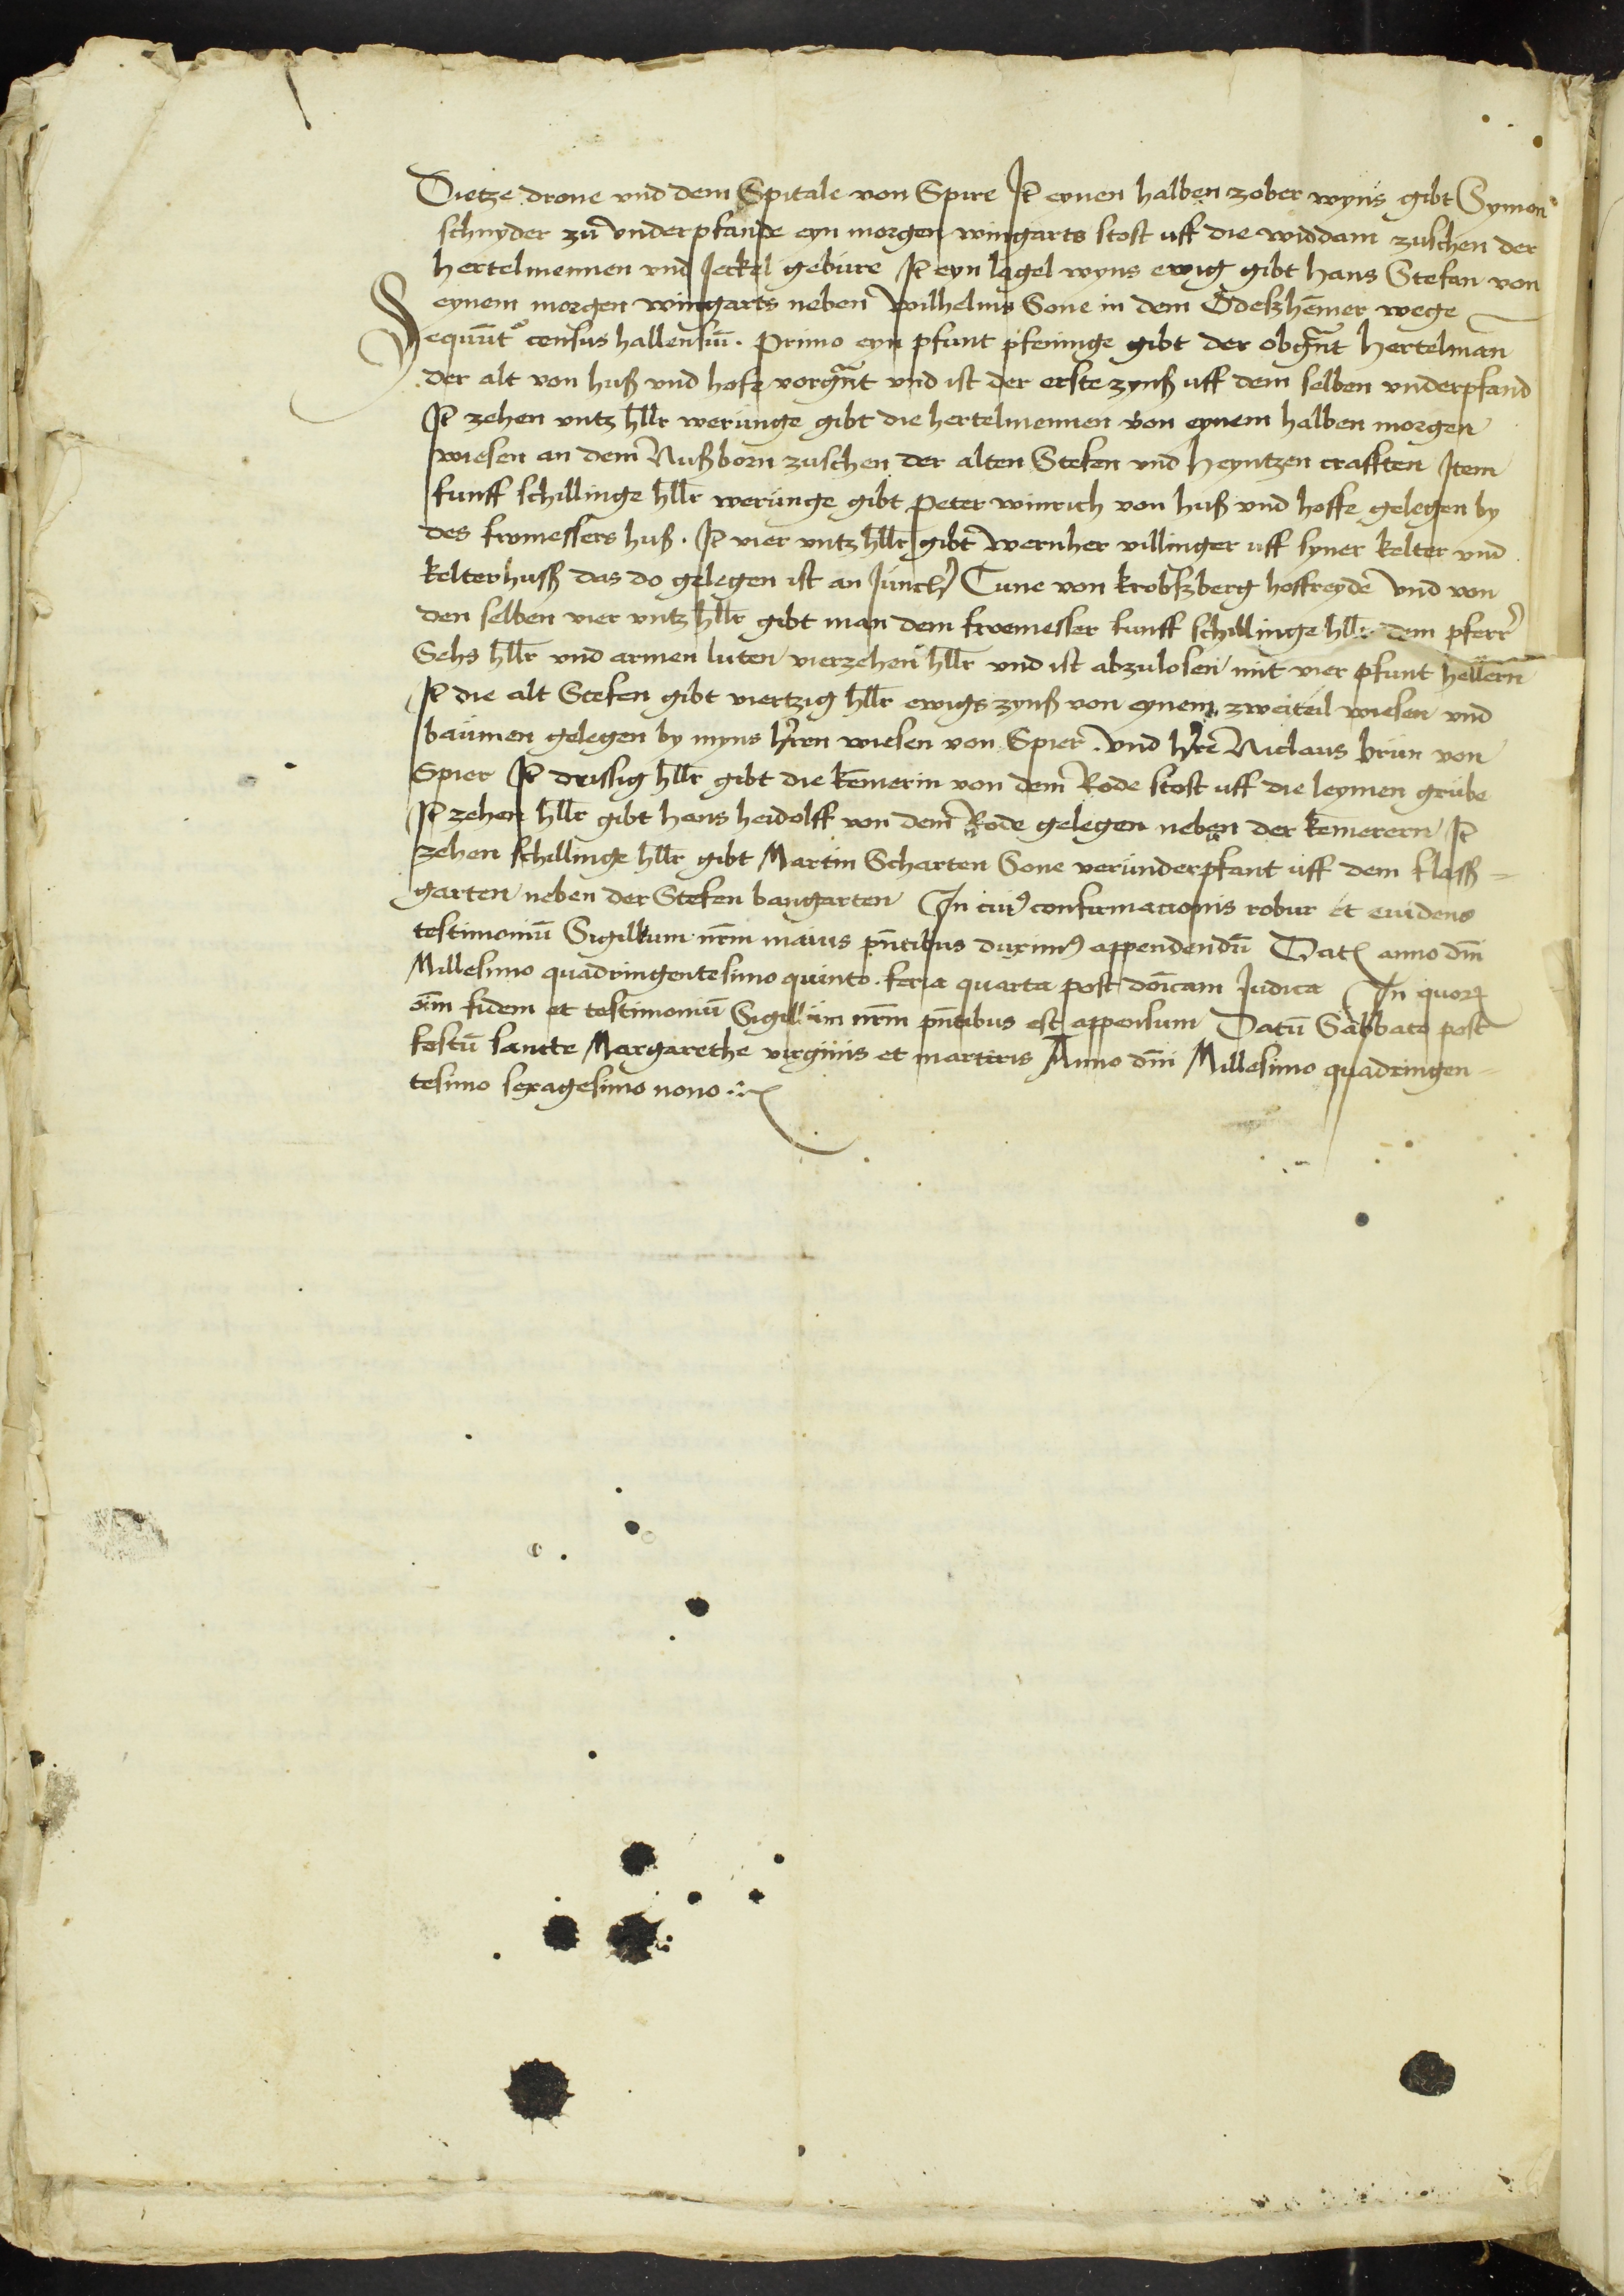 Dietze drone vnd dem Spitale von Spire Jt̄ eynen halben zober wyns gibt Symon
schnyder zu᷑ vnderpfande eyn morgen wingarts stost uff die widdam zuschen der
hertelmennen vnd Jeckel gebure Jt̄ eyn lagel wyns ewig gibt hans Stefan von
eynem morgen wingarts neben wilhelms Sone in dem Odeßhēmer wege
Sequūt᷑ census hallensiū. Primo eyn pfunt pfeninge gibt der obgn̄nt hertelman
der alt von huß vnd hofe vorgn̄nt vnd ist der erste zynß uff dem selben vnderpfand
Jt̄ zehen vntz hll̄r werunge gibt die hertelmennen von eynem halben morgen
wiesen an dem Nußborn zuschen der alten Stefen vnd heyntzen crafften Jtem
funff schillinge hll̄r werunge gibt Peter winrich von huß vnd hoffe gelegen by
des frumessers huß. Jt̄ vier vntz hll̄r gibt wernher villinger uff syner kelter vnd
kelterhuß das do gelegen ist an Junckh᷑ Cune von krobßberg hoffreyde vnd von
den selben vier vntz hll̄r gibt man dem fruemesser funff schillinge hll̄r dem pferr᷑
Sehs hll̄r vnd armen luten vierzehen hll̄r vnd ist abzulosen mit vier pfunt hellern
Jt̄ die alt Stefen gibt viertzig hll̄r ewigs zynß von eynem zweiteil wiesen vnd
baumen gelegen by myns h᷑ren wiesen von Spier. vnd h᷑re Niclaus brun von
Spier Jt̄ drissig hll̄r gibt die kemerin von dem Rode stost uff die leymen grube
Jt̄ zehen hll̄r gibt hans heidolff von dem Rode gelegen neben der kemerern Jt̄
zehen schillinge hll̄r gibt Martin Scharten Sone verunderpfant uff dem flaß=
garten neben der Stefen bangarten Jn cui᷒ confirmacionis robur et euidens
testimoniū Sigillum nr̄m maius pn̄tibus duxim᷒ appendendū Dat᷒ anno dn̄i
Millesimo quadringentesimo quinto. feria quarta post dn̄icam Judica Jn quorꝝ
oīm fidem et testimoniū Sigillum nr̄m pn̄tibus est appensum Datū Sabbato post
festū sancte Margarethe virginis et martiris Anno dn̄i Millesimo quadringen=
tesimo sexagesimo nono